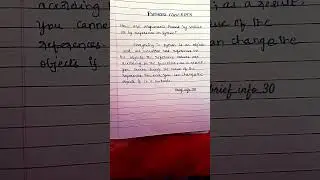 PYTHON CONCEPTS
How are arguments Passed by value
or by reference in Python?
Everything in Python is an object
and all variables hold references to
the objects. The references values are
according to the functions; as a result
you cannot change the value of the
references. However, you can change the
objects if it is mutable.
Brief_info_30
according to
as a result,
You canno
the value of the
references.
can change the
objects if
brief_info_30